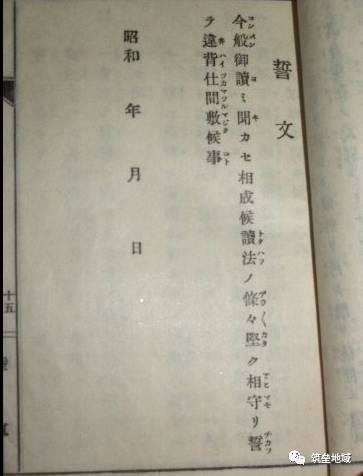 誓文
今般御讀ミ聞カセ相成候讀法ノ條々堅ク相守リ誓
テ違背仕間敷候事
昭和 年 月 日
十五
筑垒地域